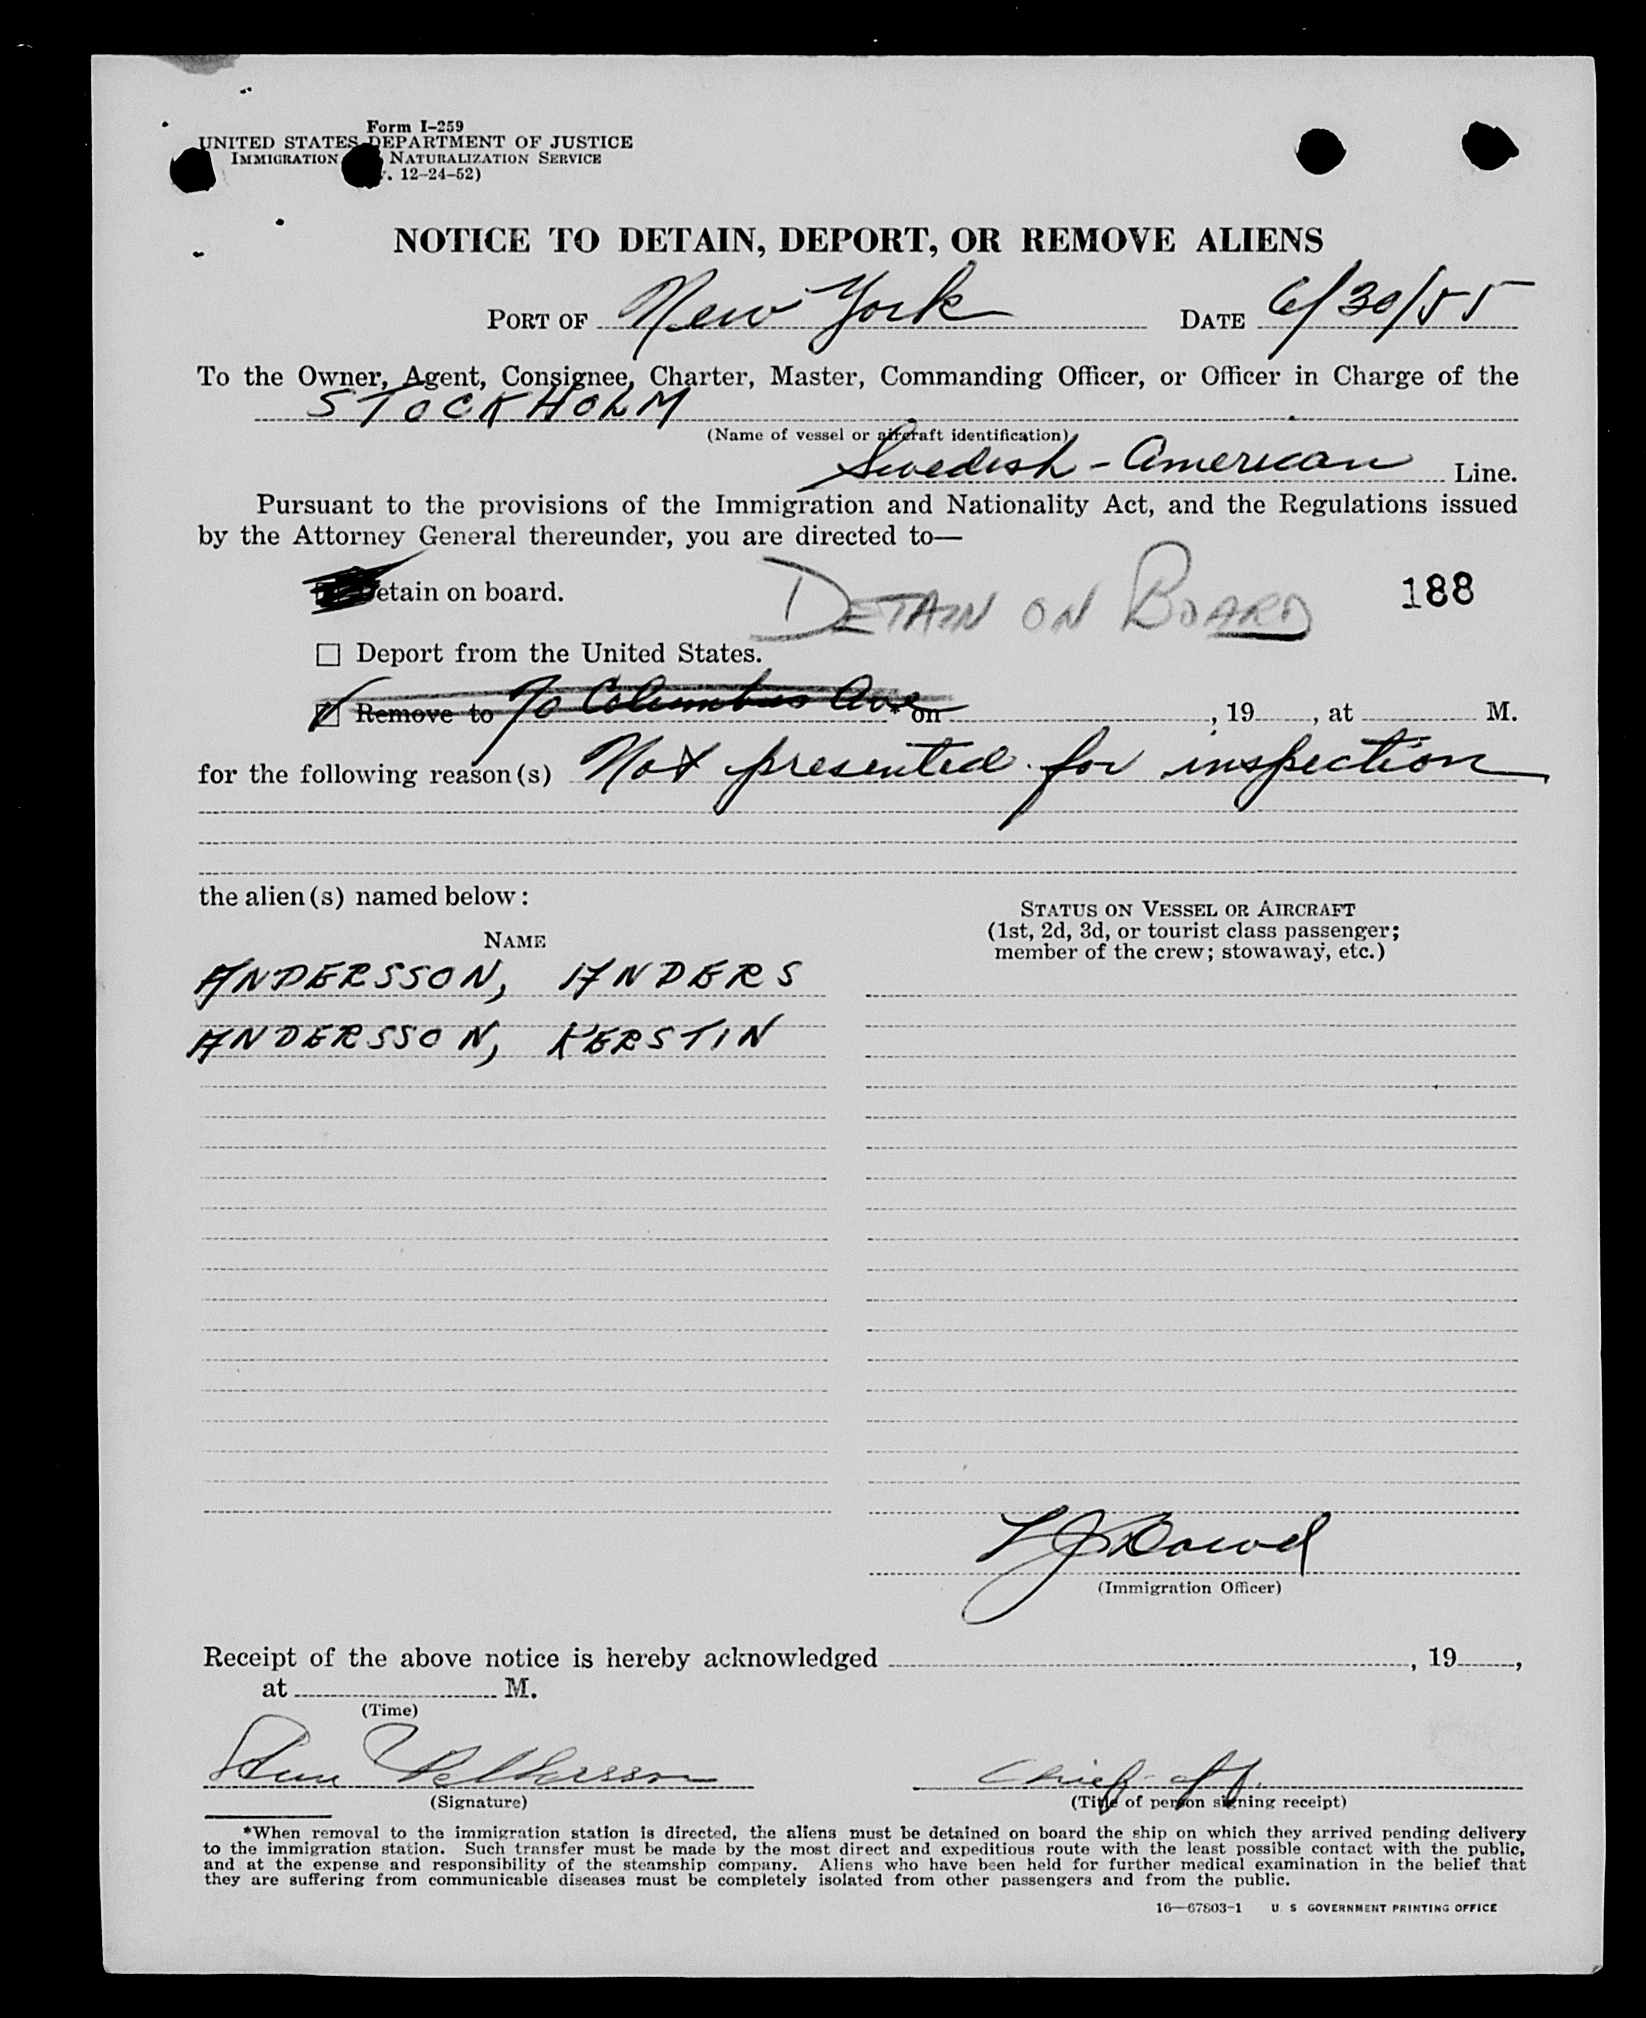 Form I-259
UNITED STATES DEPARTMENT OF JUSTICE
IMMIGRATION NATURALIZATION SERVICE
. 12-24-52)
NOTICE TO DETAIN, DEPORT, OR REMOVE ALIENS
PORT OF New York DATE 6/30/55
To the Owner, Agent, Consignee, Charter, Master, Commanding Officer, or Officer in Charge of the
STOCKHOLM
(Name of vessel or aircraft identification)
Swedish-American Line.
Pursuant to the provisions of the Immigration and Nationality Act, and the Regulations issued
by the Attorney General thereunder, you are directed to—
etain on board. DETAIN ON BOARD 188
☐ Deport from the United States.
☑ Remove to 70 Columbus Ave * on , 19 , at M.
for the following reason(s) Not presented for inspection
the alien(s) named below:
NAME
STATUS ON VESSEL OR AIRCRAFT
(1st, 2d, 3d, or tourist class passenger;
member of the crew; stowaway, etc.)
ANDERSSON, ANDERS
ANDERSSON, KERSTIN
L J Dowd
(Immigration Officer)
Receipt of the above notice is hereby acknowledged , 19 ,
at M.
(Time)
Chief-off.
(Signature) (Title of person signing receipt)
*When removal to the immigration station is directed, the aliens must be detained on board the ship on which they arrived pending delivery
to the immigration station. Such transfer must be made by the most direct and expeditious route with the least possible contact with the public,
and at the expense and responsibility of the steamship company. Aliens who have been held for further medical examination in the belief that
they are suffering from communicable diseases must be completely isolated from other passengers and from the public.
16—67803-1 U S GOVERNMENT PRINTING OFFICE